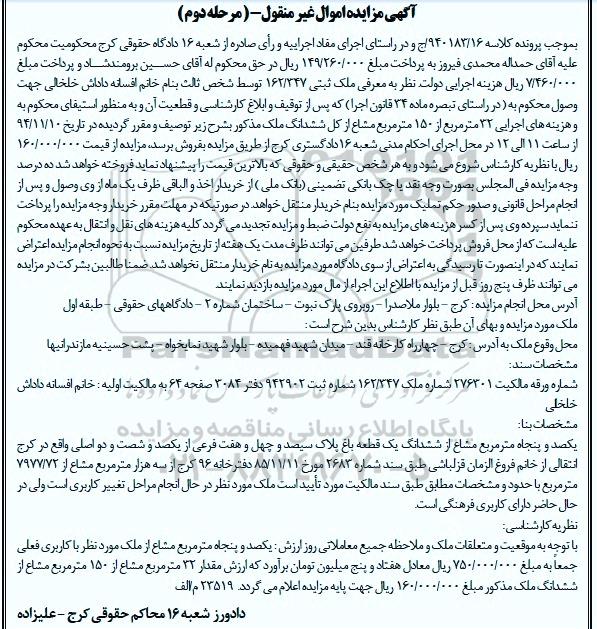 آگهی مزایده اموال غیر منقول-(مرحله دوم)
بموجب پرونده کلاسه ۹۴۰۱۸۳/۱۶/ج و در راستای اجرای مفاد اجراییه و رأی صادره از شعبه ۱۶ دادگاه حقوقی کرج محکومیت محکوم
علیه آقای حمداله محمدی فیروز به پرداخت مبلغ ۱۴۹/۲۶۰/۰۰۰ ریال در حق محکوم له آقای حسین برومندشاد و پرداخت مبلغ
۷/۴۶۰/۰۰۰ ریال هزینه اجرایی دولت. نظر به معرفی ملک ثبتی ۱۶۲/۳۴۷ توسط شخص ثالث بنام خانم افسانه داداش خلخالی جهت
وصول محکوم به (در راستای تبصره ماده ۳۴ قانون اجرا) که پس از توقیف و ابلاغ کارشناسی و قطعیت آن و به منظور استیفای محکوم به
و هزینه های اجرایی ۳۲ مترمربع از ۱۵۰ مترمربع مشاع از کل ششدانگ ملک مذکور بشرح زیر توصیف و مقرر گردیده در تاریخ ۹۴/۱۱/۱۰
از ساعت ۱۱ الی ۱۲ در محل اجرای احکام مدنی شعبه ۱۶ دادگستری کرج از طریق مزایده بفروش برسد، مزایده از قیمت ۱۶۰/۰۰۰/۰۰۰
ریال با نظریه کارشناس شروع می شود و به هر شخص حقیقی و حقوقی که بالاترین قیمت را پیشنهاد نماید فروخته خواهد شد ده درصد
وجه مزایده فی المجلس بصورت وجه نقد یا چک بانکی تضمینی (بانک ملی) از خریدار اخذ و الباقی ظرف یک ماه از وی وصول و پس از
انجام مراحل قانونی و صدور حکم تملیک مورد مزایده بنام خریدار منتقل خواهد. در صورتیکه در مهلت مقرر خریدار وجه مزایده را پرداخت
ننماید سپرده وی پس از کسر هزینه های مزایده به نفع دولت ضبط و مزایده تجدید می گردد کلیه هزینه های نقل و انتقال به عهده محکوم
علیه است که از محل فروش پرداخت خواهد شد طرفین می توانند ظرف مدت یک هفته از تاریخ مزایده نسبت به نحوه انجام مزایده اعتراض
نمایند که در اینصورت تا رسیدگی به اعتراض از سوی دادگاه مورد مزایده به نام خریدار منتقل نخواهد شد. ضمنا طالبین بشرکت در مزایده
می توانند ظرف پنج روز قبل از مزایده با اطلاع این اجراء از مال مورد مزایده بازدید نمایند.
آدرس محل انجام مزایده: کرج - بلوار ملاصدرا - روبروی پارک نبوت - ساختمان شماره ۲ - دادگاههای حقوقی - طبقه اول
ملک مورد مزایده و بهای آن طبق نظر کارشناس بدین شرح است:
محل وقوع ملک به آدرس: کرج - چهارراه کارخانه قند - میدان شهید فهمیده - بلوار شهید نمایخواه - پشت حسینیه مازندرانیها
مشخصات سند:
شماره ورقه مالکیت ۲۷۶۳۰۱ شماره ملک ۱۶۲/۳۴۷ شماره ثبت ۹۴۲۹۰۲ دفتر ۳۰۸۴ صفحه ۶۴ به مالکیت اولیه: خانم افسانه داداش
خلخلی
مشخصات بنا:
یکصد و پنجاه مترمربع مشاع از ششدانگ یک قطعه باغ پلاک سیصد و چهل و هفت فرعی از یکصد و شصت و دو اصلی واقع در کرج
انتقالی از خانم فروغ الزمان قزلباشی طبق سند شماره ۲۶۸۳ مورخ ۸۵/۱۱/۱۱ دفترخانه ۹۶ کرج از سه هزار مترمربع مشاع از ۷۹۷۷/۷۲
مترمربع با حدود و مشخصات مطابق طبق سند مالکیت مورد تأیید است ملک مورد نظر در حال انجام مراحل تغییر کاربری است ولی در
حال حاضر دارای کاربری فرهنگی است.
نظریه کارشناسی:
با توجه به موقعیت و متعلقات ملک و ملاحظه جمیع معاملاتی روز ارزش: یکصد و پنجاه مترمربع مشاع از ملک مورد نظر با کاربری فعلی
جمعاً به مبلغ ۷۵۰/۰۰۰/۰۰۰ ریال معادل هفتاد و پنج میلیون تومان برآورد که ارزش مقدار ۳۲ مترمربع مشاع از ۱۵۰ مترمربع مشاع از
ششدانگ ملک مذکور مبلغ ۱۶۰/۰۰۰/۰۰۰ ریال جهت پایه مزایده اعلام می گردد. ۲۳۵۱۹ م/الف
دادورز شعبه ۱۶ محاکم حقوقی کرج - علیزاده